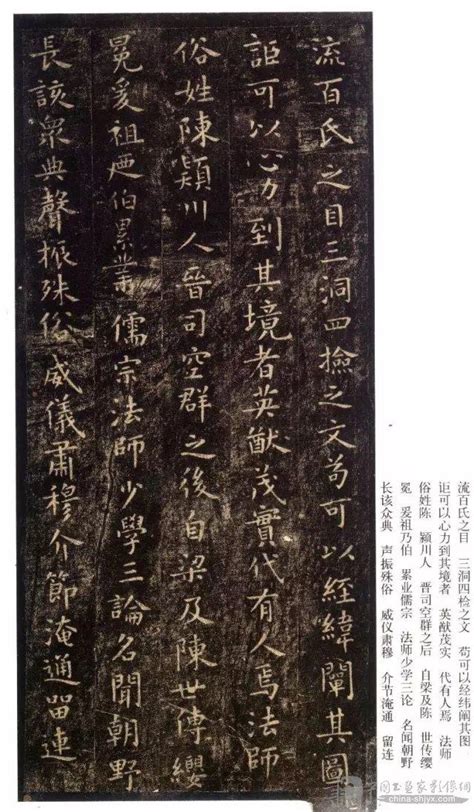 流百氏之目三洞四撿之文苟可以經緯闡其圖
詎可以心力到其境者英猷茂實代有人焉法師
俗姓陳潁川人晉司空群之後自梁及陳世傳纓
冕爰祖迺伯累業儒宗法師少學三論名聞朝野
長該衆典聲振殊俗威儀肅穆介節淹通留連
流百氏之目 三洞四检之文 苟可以经纬阐其图
讵可以心力到其境者 英猷茂实 代有人焉 法师
俗姓陈 颍川人 晋司空群之后 自梁及陈 世传缨
冕 爰祖乃伯 累业儒宗 法师少学三论 名闻朝野
长该众典 声振殊俗 威仪肃穆 介节淹通 留连
中国书画家影像网
china-shjyx.com